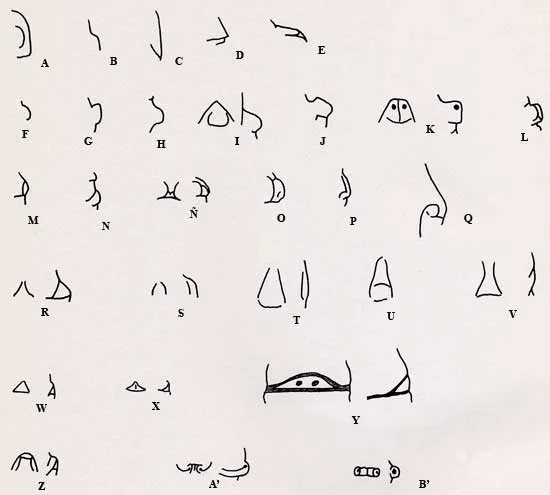 A B C D E
F G H I J K L
M N Ñ O P Q
R S T U V
W X Y
Z A' B'